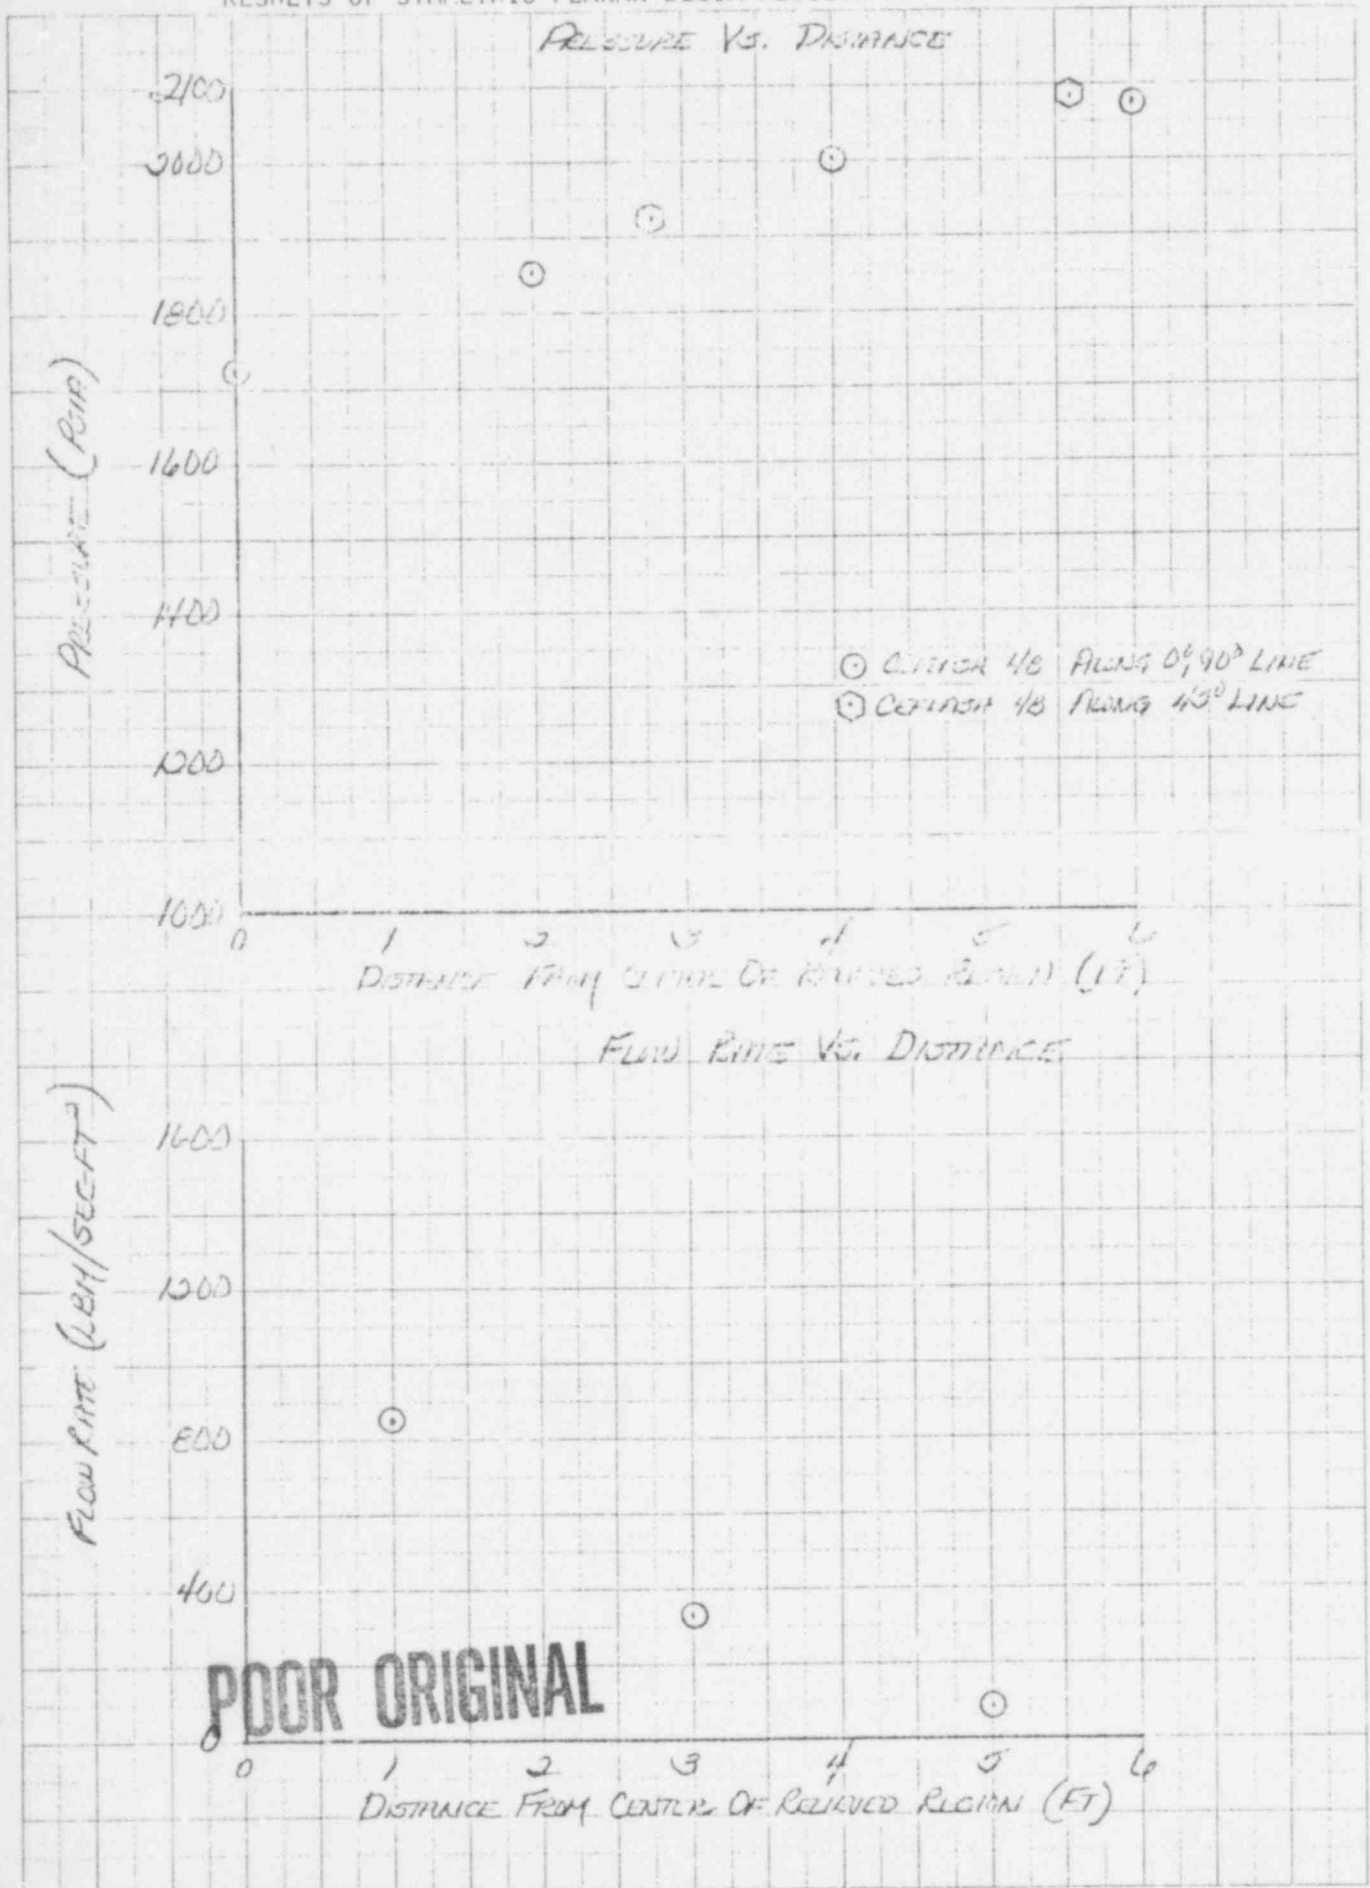 RESULTS OF SYMMETRIC PLANAR
PRESSURE VS. DISTANCE
2100
2000
1800
1600
1400
1200
1000
PRESSURE (PSIA)
⊙ CEFLASH 4/B ALONG 0°, 90° LINE
CEFLASH 4/B ALONG 45° LINE
0 1 2 3 4 5 6
DISTANCE FROM CENTER OF RELIEVED REGION (FT)
FLOW RATE VS. DISTANCE
1600
1200
800
400
0
FLOW RATE (LBM/SEC-FT²)
POOR ORIGINAL
0 1 2 3 4 5 6
DISTANCE FROM CENTER OF RELIEVED REGION (FT)